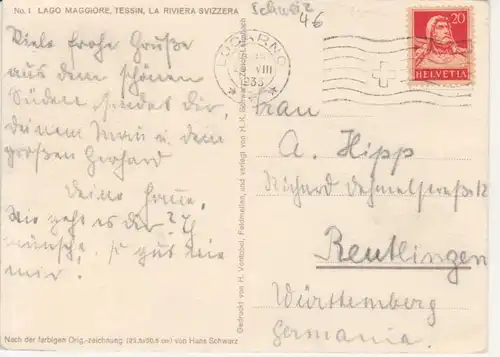 No. 1 LAGO MAGGIORE, TESSIN, LA RIVIERA SVIZZERA
Schweiz
46
Viele frohe Grüße
aus dem schönen
Süden sendet dir,
deinem Mann u. dem
großen Gerhard
deine
Wie geht es dir? Ich
wünsche, so gut wie
mir.
Nach der farbigen Orig.-zeichnung (29,5x50,5 cm) von Hans Schwarz
Gedruckt von H. Vontobel, Feldmeilen, und verlegt von H. R. Schwarz, Zürich
LOCARNO
VIII
1935
20
HELVETIA
Frau
A. Hipp
Richard Dehmelstraße 12
Reutlingen
Württemberg
Germania.